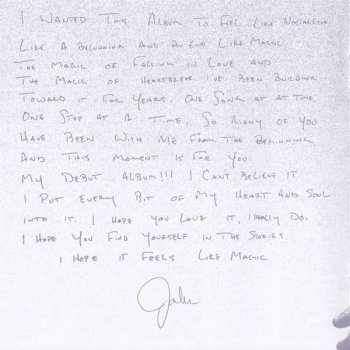 I WANTED THIS ALBUM TO FEEL LIKE NOSTALGIA
LIKE A BEGINNING AND AN END LIKE MAGIC
THE MAGIC OF FALLING IN LOVE AND
THE MAGIC OF HEARTBREAK I'VE BEEN BUILDING
TOWARD IT FOR YEARS. ONE SONG AT A TIME
ONE STEP AT A TIME. SO MANY OF YOU
HAVE BEEN WITH ME FROM THE BEGINNING
AND THIS MOMENT IS FOR YOU.
MY DEBUT ALBUM!!! I CAN'T BELIEVE IT
I PUT EVERY BIT OF MY HEART AND SOUL
INTO IT. I HOPE YOU LOVE IT, I REALLY DO.
I HOPE YOU FIND YOURSELF IN THE STORIES.
I HOPE IT FEELS LIKE MAGIC